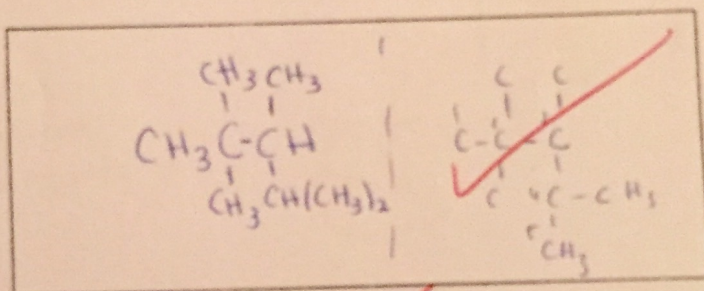 CH3 CH3
CH3 C-CH
CH3 CH(CH3)2
C C
C-C-C
C C-CH3
CH3